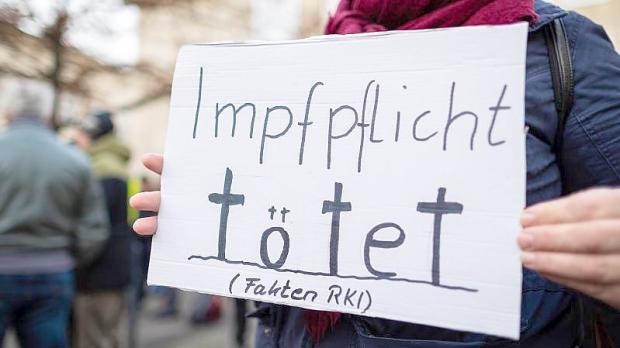 Impfpflicht
tötet
(Fakten RKI)